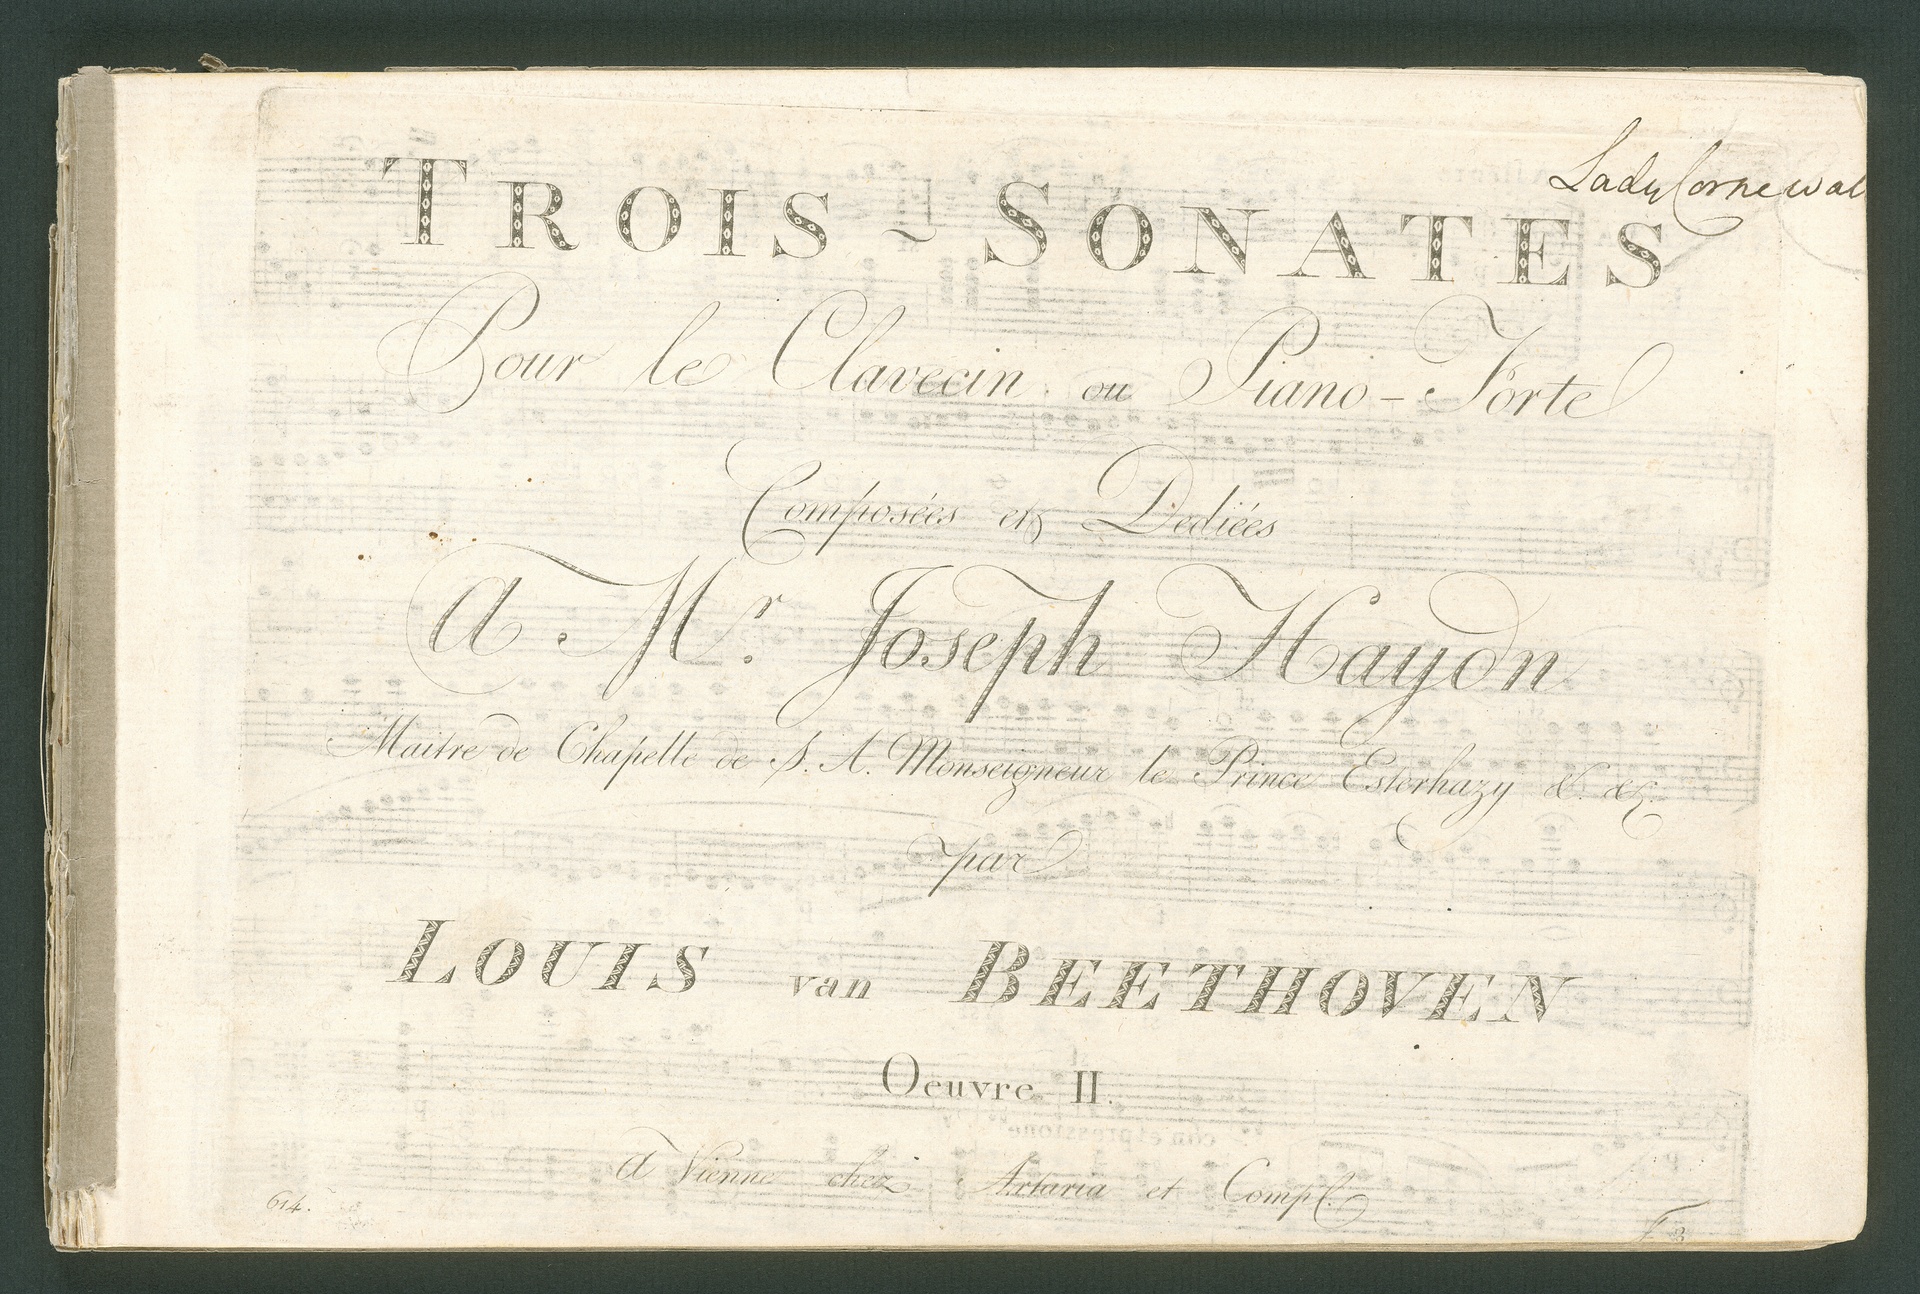 Lady Cornewal
TROIS ~ SONATES
Pour le Clavecin ou Piano-Forte
Composées et Dediées
A Mr. Joseph Haydn
Maitre de Chapelle de S. A. Monseigneur le Prince Esterhazy &. &.
par
LOUIS van BEETHOVEN
Oeuvre II.
A Vienne chez Artaria et Comp.
614.
con espressione